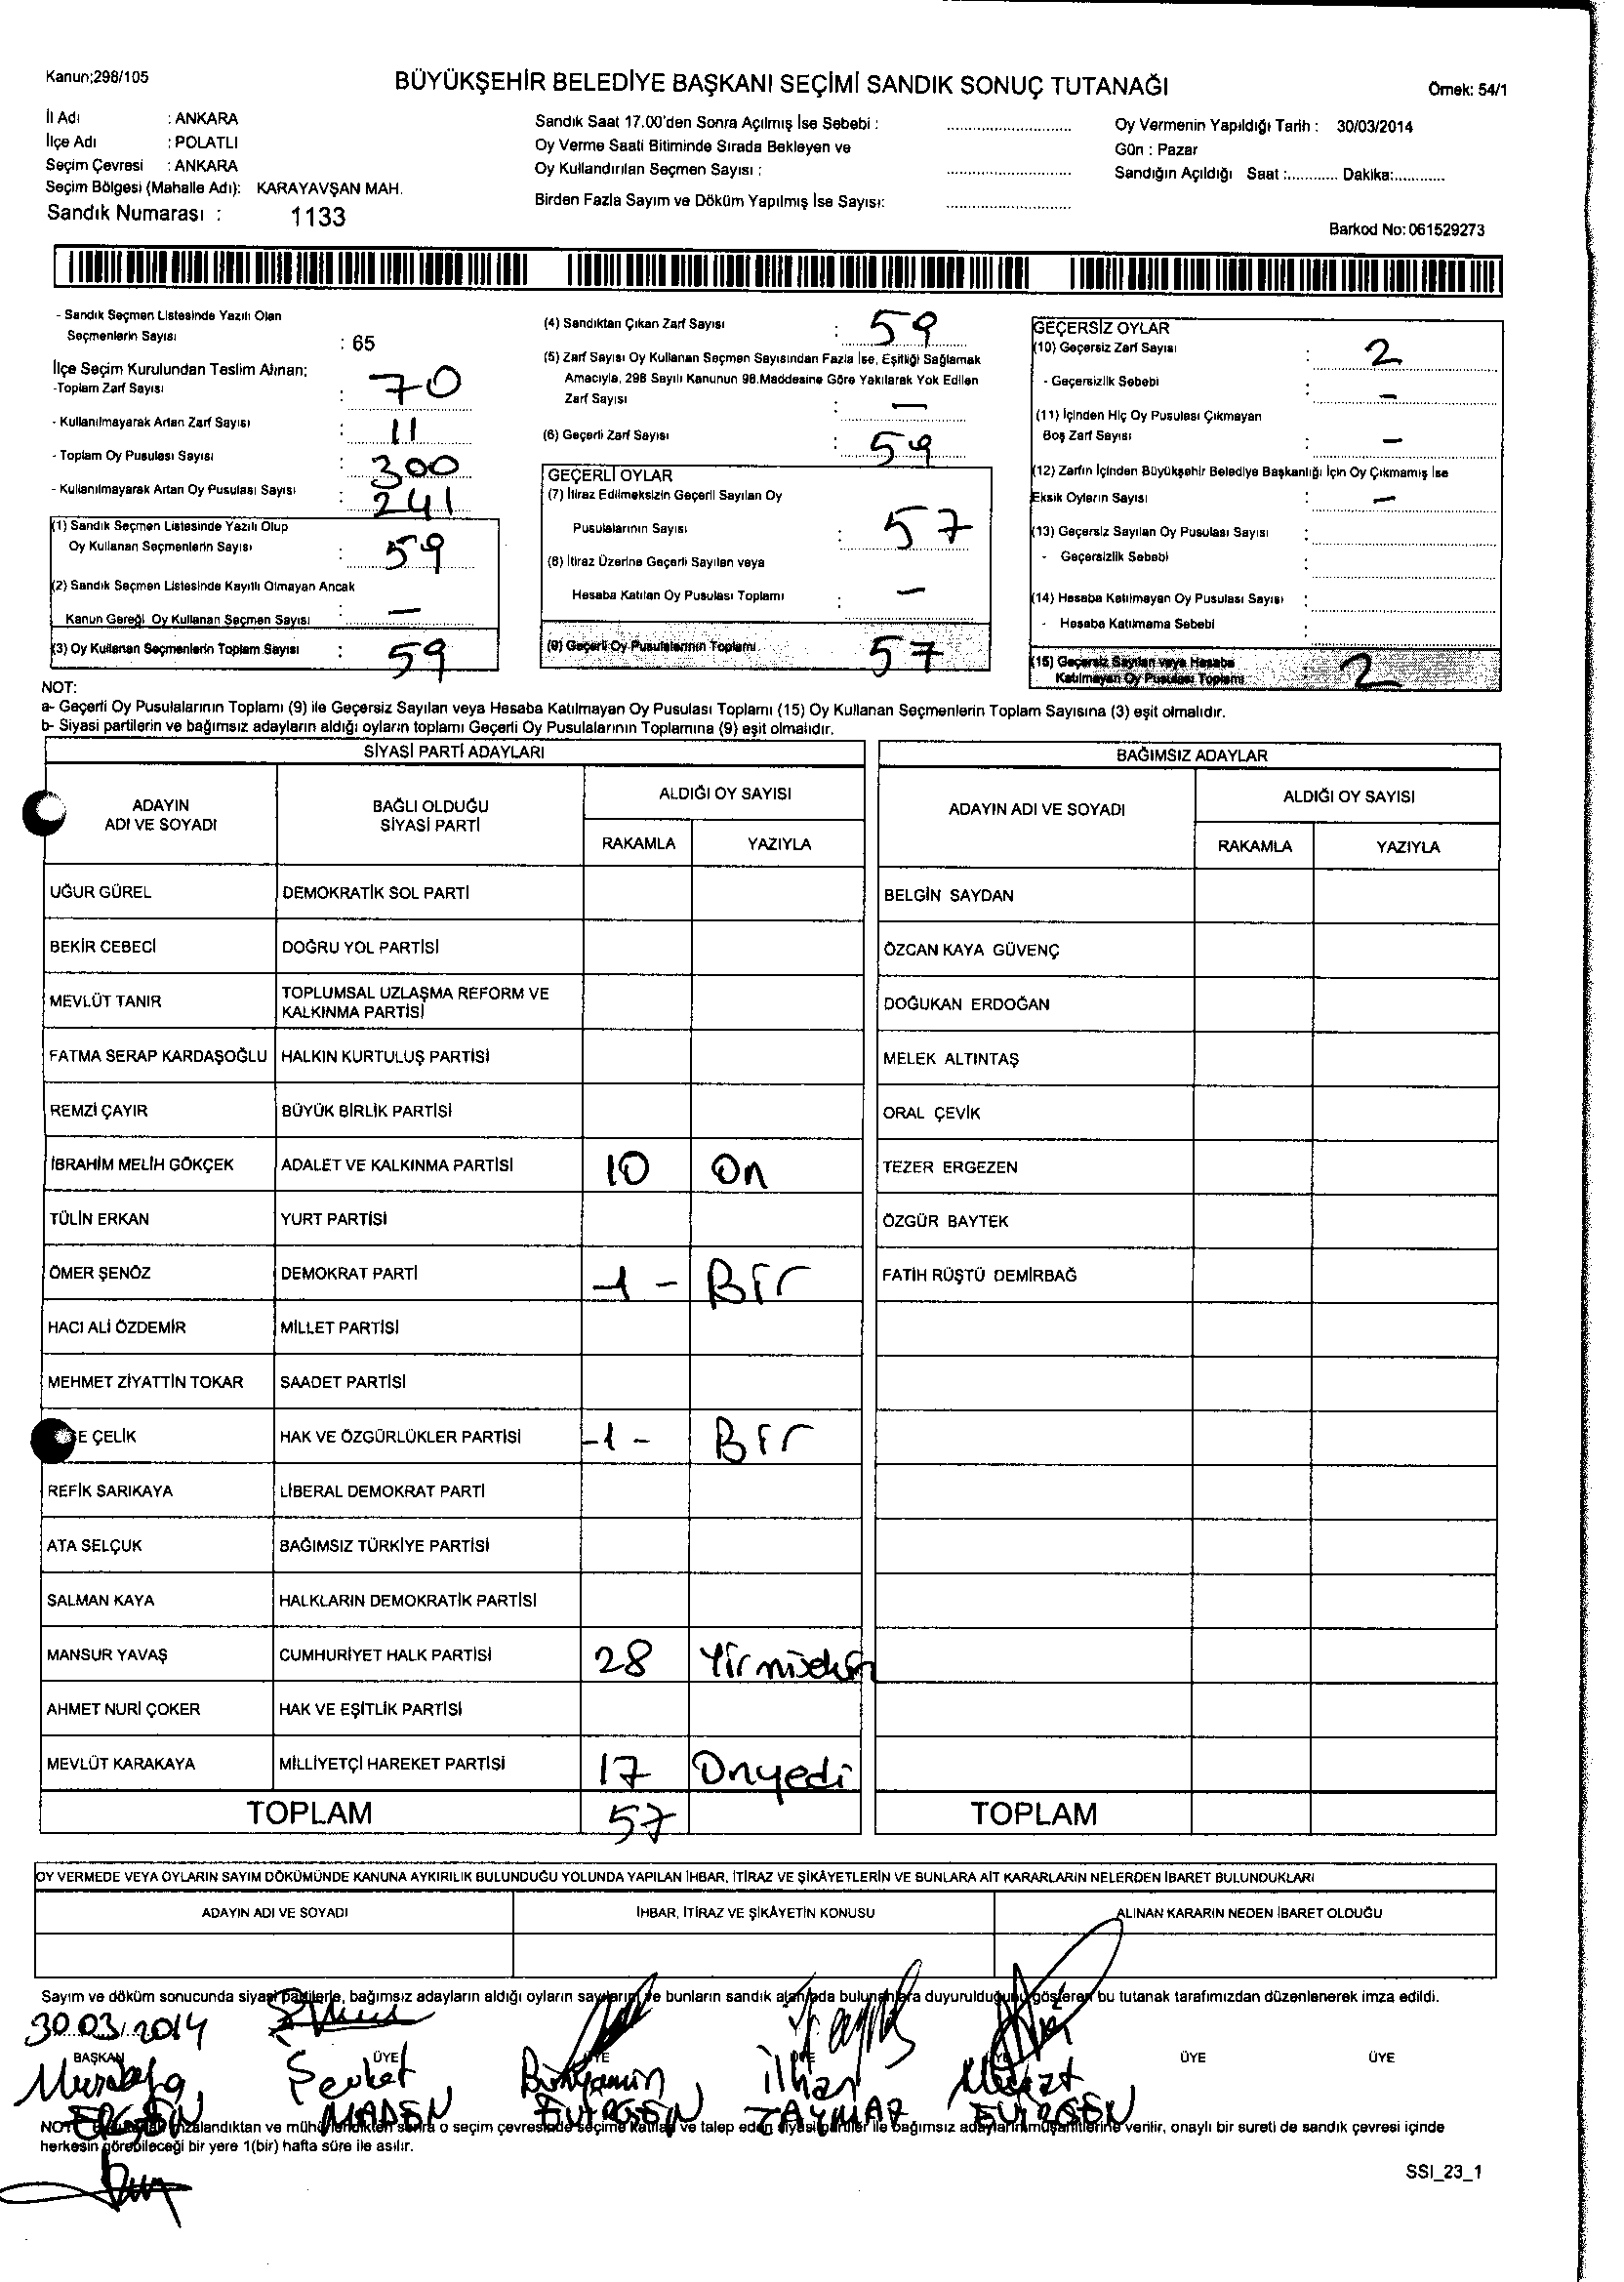 Kanun;298/105
BÜYÜKŞEHİR BELEDİYE BAŞKANI SEÇİMİ SANDIK SONUÇ TUTANAĞI
Örnek: 54/1
İl Adı : ANKARA
İlçe Adı : POLATLI
Seçim Çevresi : ANKARA
Seçim Bölgesi (Mahalle Adı): KARAYAVŞAN MAH.
Sandık Numarası : 1133
Sandık Saat 17.00'den Sonra Açılmış İse Sebebi :
Oy Verme Saati Bitiminde Sırada Bekleyen ve
Oy Kullandırılan Seçmen Sayısı :
Birden Fazla Sayım ve Döküm Yapılmış İse Sayısı:
Oy Vermenin Yapıldığı Tarih : 30/03/2014
Gün : Pazar
Sandığın Açıldığı Saat :............ Dakika:............
Barkod No: 061529273
- Sandık Seçmen Listesinde Yazılı Olan
Seçmenlerin Sayısı : 65
İlçe Seçim Kurulundan Teslim Alınan:
-Toplam Zarf Sayısı : 70
- Kullanılmayarak Artan Zarf Sayısı : 11
- Toplam Oy Pusulası Sayısı : 300
- Kullanılmayarak Artan Oy Pusulası Sayısı : 241
(1) Sandık Seçmen Listesinde Yazılı Olup
Oy Kullanan Seçmenlerin Sayısı : 59
(2) Sandık Seçmen Listesinde Kayıtlı Olmayan Ancak
Kanun Gereği Oy Kullanan Seçmen Sayısı : —
(3) Oy Kullanan Seçmenlerin Toplam Sayısı : 59
(4) Sandıktan Çıkan Zarf Sayısı : 59
(5) Zarf Sayısı Oy Kullanan Seçmen Sayısından Fazla İse, Eşitliği Sağlamak
Amacıyla, 298 Sayılı Kanunun 98.Maddesine Göre Yakılarak Yok Edilen
Zarf Sayısı : —
(6) Geçerli Zarf Sayısı : 59
GEÇERLİ OYLAR
(7) İtiraz Edilmeksizin Geçerli Sayılan Oy
Pusulalarının Sayısı : 57
(8) İtiraz Üzerine Geçerli Sayılan veya
Hesaba Katılan Oy Pusulası Toplamı : —
(9) Geçerli Oy Pusulalarının Toplamı 57
GEÇERSİZ OYLAR
(10) Geçersiz Zarf Sayısı : 2
- Geçersizlik Sebebi : —
(11) İçinden Hiç Oy Pusulası Çıkmayan
Boş Zarf Sayısı : —
(12) Zarfın İçinden Büyükşehir Belediye Başkanlığı İçin Oy Çıkmamış İse
Eksik Oyların Sayısı : —
(13) Geçersiz Sayılan Oy Pusulası Sayısı :
- Geçersizlik Sebebi :
(14) Hesaba Katılmayan Oy Pusulası Sayısı :
- Hesaba Katılmama Sebebi :
(15) Geçersiz Sayılan veya Hesaba
Katılmayan Oy Pusulası Toplamı : 2
NOT:
a- Geçerli Oy Pusulalarının Toplamı (9) ile Geçersiz Sayılan veya Hesaba Katılmayan Oy Pusulası Toplamı (15) Oy Kullanan Seçmenlerin Toplam Sayısına (3) eşit olmalıdır.
b- Siyasi partilerin ve bağımsız adayların aldığı oyların toplamı Geçerli Oy Pusulalarının Toplamına (9) eşit olmalıdır.
SİYASİ PARTİ ADAYLARI
ADAYIN ADI VE SOYADI BAĞLI OLDUĞU SİYASİ PARTİ ALDIĞI OY SAYISI
RAKAMLA YAZIYLA
UĞUR GÜREL DEMOKRATİK SOL PARTİ
BEKİR CEBECİ DOĞRU YOL PARTİSİ
MEVLÜT TANIR TOPLUMSAL UZLAŞMA REFORM VE KALKINMA PARTİSİ
FATMA SERAP KARDAŞOĞLU HALKIN KURTULUŞ PARTİSİ
REMZİ ÇAYIR BÜYÜK BİRLİK PARTİSİ
İBRAHİM MELİH GÖKÇEK ADALET VE KALKINMA PARTİSİ 10 On
TÜLİN ERKAN YURT PARTİSİ
ÖMER ŞENÖZ DEMOKRAT PARTİ -1- Bir
HACI ALİ ÖZDEMİR MİLLET PARTİSİ
MEHMET ZİYATTİN TOKAR SAADET PARTİSİ
E ÇELİK HAK VE ÖZGÜRLÜKLER PARTİSİ -1- Bir
REFİK SARIKAYA LİBERAL DEMOKRAT PARTİ
ATA SELÇUK BAĞIMSIZ TÜRKİYE PARTİSİ
SALMAN KAYA HALKLARIN DEMOKRATİK PARTİSİ
MANSUR YAVAŞ CUMHURİYET HALK PARTİSİ 28
AHMET NURİ ÇOKER HAK VE EŞİTLİK PARTİSİ
MEVLÜT KARAKAYA MİLLİYETÇİ HAREKET PARTİSİ 17 Onyedi
TOPLAM 57
BAĞIMSIZ ADAYLAR
ADAYIN ADI VE SOYADI ALDIĞI OY SAYISI
RAKAMLA YAZIYLA
BELGİN SAYDAN
ÖZCAN KAYA GÜVENÇ
DOĞUKAN ERDOĞAN
MELEK ALTINTAŞ
ORAL ÇEVİK
TEZER ERGEZEN
ÖZGÜR BAYTEK
FATİH RÜŞTÜ DEMİRBAĞ
TOPLAM
OY VERMEDE VEYA OYLARIN SAYIM DÖKÜMÜNDE KANUNA AYKIRILIK BULUNDUĞU YOLUNDA YAPILAN İHBAR, İTİRAZ VE ŞİKÂYETLERİN VE BUNLARA AİT KARARLARIN NELERDEN İBARET BULUNDUKLARI
ADAYIN ADI VE SOYADI İHBAR, İTİRAZ VE ŞİKÂYETİN KONUSU ALINAN KARARIN NEDEN İBARET OLDUĞU
Sayım ve döküm sonucunda siyasi partilerle, bağımsız adayların aldığı oyların sayılarını ve bunların sandık alanında bulunanlara duyurulduğunu gösteren bu tutanak tarafımızdan düzenlenerek imza edildi.
30.03/2014
BAŞKAN ÜYE ÜYE ÜYE ÜYE ÜYE ÜYE
Mustafa Şevket Bünyamin İlhan
ERGEN MADEN EVİRGEN TAYMAZ EVİRGEN
NOT: imzalandıktan ve mühürlendikten sonra o seçim çevresinde seçime katılan ve talep eden siyasi partiler ile bağımsız adayların müşahitlerine verilir, onaylı bir sureti de sandık çevresi içinde
herkesin görebileceği bir yere 1(bir) hafta süre ile asılır.
SSI_23_1